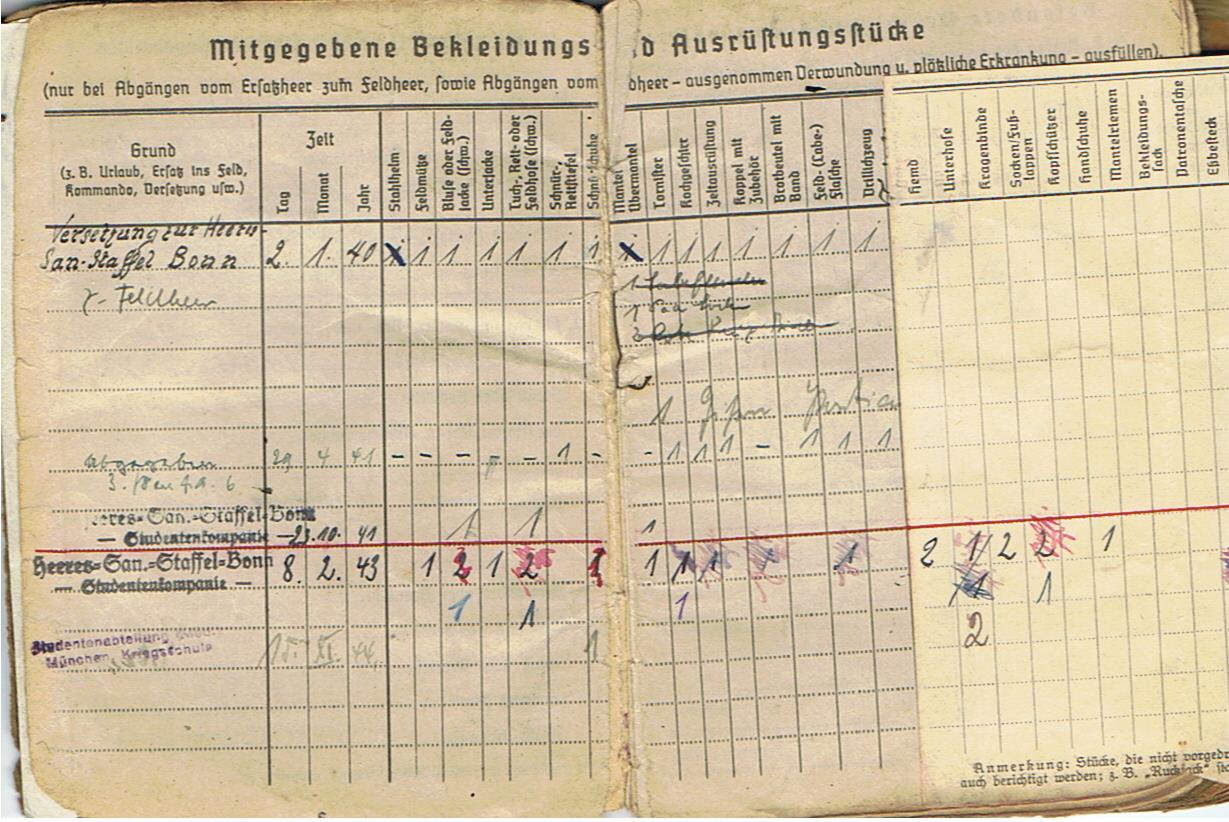 Mitgegebene Bekleidungs- nd Ausrüstungsstücke
(nur bei Abgängen vom Ersatzheer zum Feldheer, sowie Abgängen vom dheer – ausgenommen Verwundung u. plötzliche Erkrankung – ausfüllen).
Grund
(z. B. Urlaub, Ersatz ins Feld,
Kommando, Versetzung usw.)
Zeit
Tag
Monat
Jahr
Stahlhelm
Feldmütze
Bluse oder Feld-
jacke (schw.)
Unterjacke
Tuch-, Reit- oder
Feldhose (schw.)
Schnür-,
Reitstiefel
Schnür-Schuhe
Mantel
Übermantel
Tornister
Kochgeschirr
Zeltausrüstung
Koppel mit
Zubehör
Brotbeutel mit
Band
Feld- (Labe-)
Flasche
Drillichzeug
Hemd
Unterhose
Kragenbinde
Socken/Fuß-
lappen
Kopfschützer
Handschuhe
Mantelriemen
Bekleidungs-
sack
Patronentasche
Eßbesteck
Versetzung zur Heeres-
San-Staffel Bonn 2. 1. 40 1 1 1 1 1 1 1 1 1 1 1 1 1
z. Feldheer
1
abgegeben 29 4 41 – – – – 1 – – 1 1 1 – 1 1 1
eres-San.-Staffel-Bonn
— Studentenkompanie — 23. 10. 41 1 1 1
Heeres-San.-Staffel-Bonn 8. 2. 43 1 2 1 2 1 1 1 1 1 2 1 2 2 1
— Studentenkompanie —
1 1 1 1
2
Studentenabteilung
München, Kriegsschule 15. XI. 44. 1
Anmerkung: Stücke, die nicht vorgedr
auch berichtigt werden; z. B. „Rucksack"